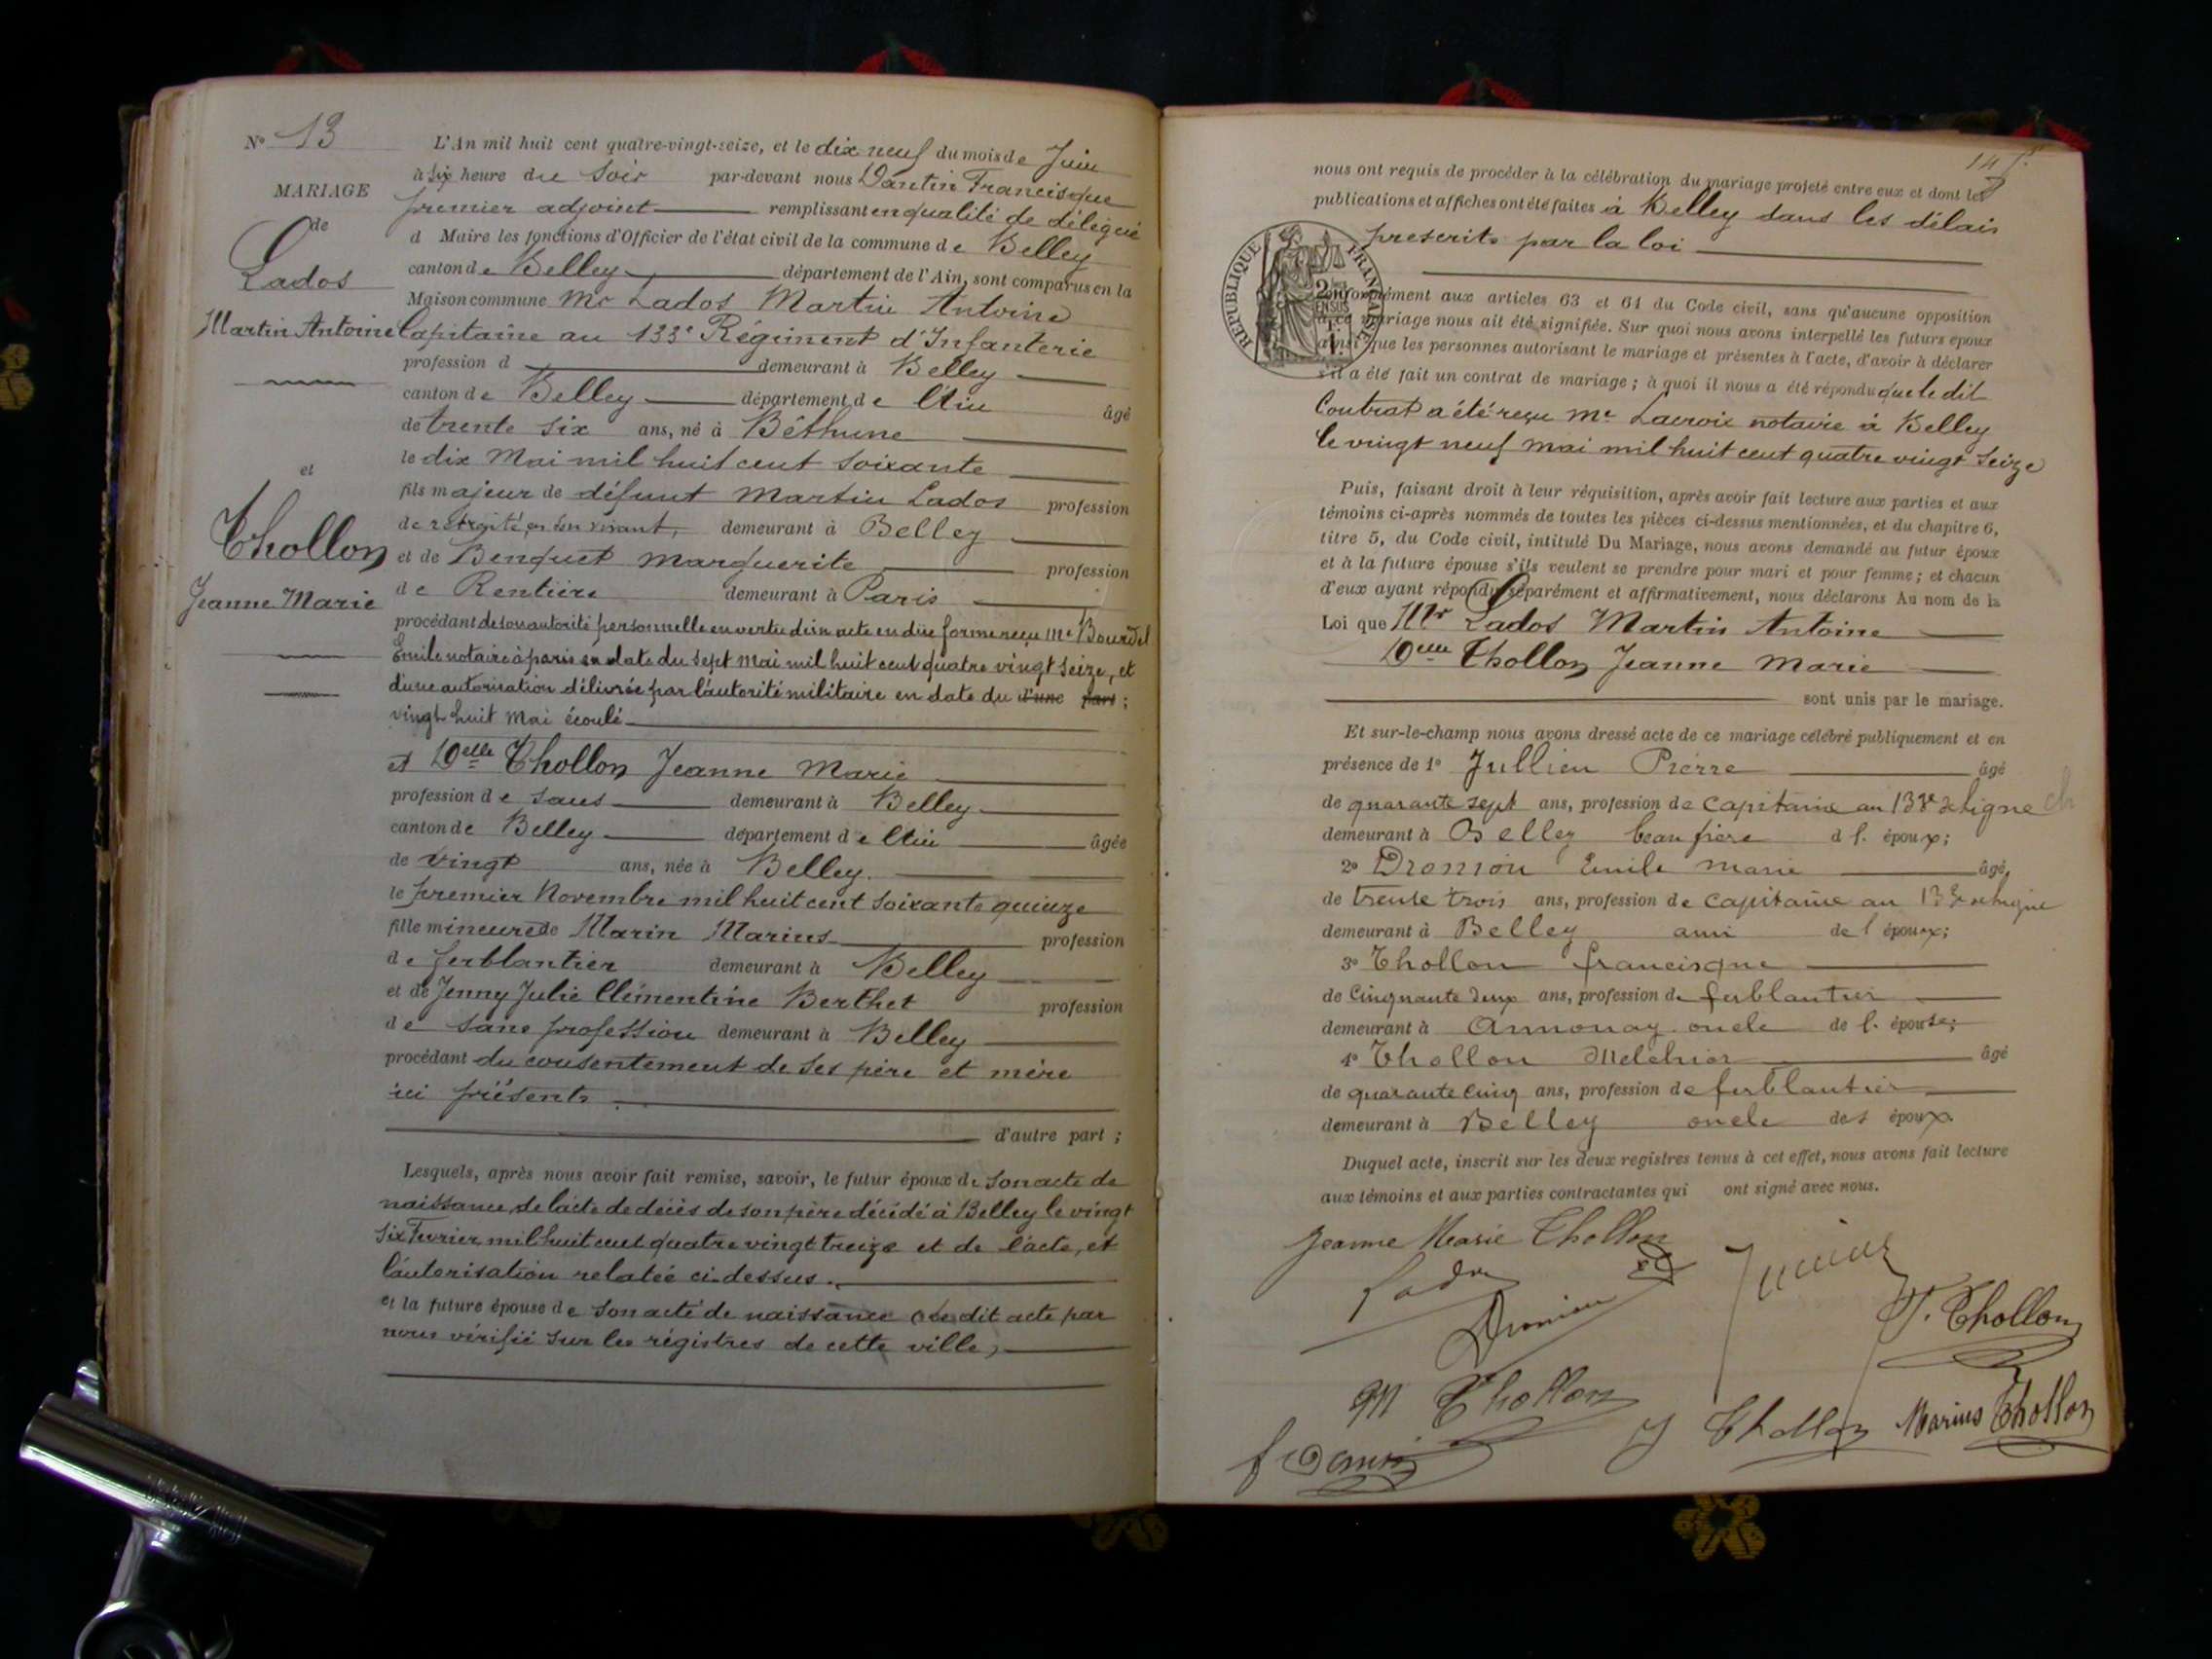 N° 13
MARIAGE
de
Lados
Martin Antoine
et
Thollon
Jeanne Marie
L'An mil huit cent quatre-vingt-seize, et le dix neuf du mois de Juin
à six heure du soir par-devant nous Dantin Francisque
premier adjoint remplissant en qualité de délégué
d Maire les fonctions d'Officier de l'état civil de la commune de Belley
canton de Belley département de l'Ain, sont comparus en la
Maison commune Mr Lados Martin Antoine
Capitaine au 133e Régiment d'Infanterie
profession d demeurant à Belley
canton de Belley département de l'Ain âgé
de trente six ans, né à Béthune
le dix Mai mil huit cent soixante
fils majeur de défunt Martin Lados profession
de retraité, en son vivant, demeurant à Belley
et de Benquet Marguerite profession
de Rentière demeurant à Paris
procédant de son autorité personnelle en vertu d'un acte en due forme reçu Me Bourdel
Emile notaire à paris en date du sept Mai mil huit cent quatre vingt seize, et
d'une autorisation délivrée par l'autorité militaire en date du d'une part ;
vingt huit Mai écoulé
et Delle Thollon Jeanne Marie
profession de sans demeurant à Belley
canton de Belley département de l'Ain âgée
de vingt ans, née à Belley.
le premier Novembre mil huit cent soixante quinze
fille mineure de Marin Marius profession
de ferblantier demeurant à Belley
et de Jenny Julie Clémentine Berthet profession
de sans profession demeurant à Belley
procédant du consentement de ses père et mère
ici présents
d'autre part ;
Lesquels, après nous avoir fait remise, savoir, le futur époux de son acte de
naissance, de l'acte de décès de son père décédé à Belley le vingt
six Février mil huit cent quatre vingt treize et de l'acte, et
l'autorisation relatée ci-dessus.
et la future épouse de son acte de naissance le dit acte par
nous vérifié sur les régistres de cette ville,
nous ont requis de procéder à la célébration du mariage projeté entre eux et dont les
publications et affiches ont été faites à Belley dans les délais
prescrits par la loi
REPUBLIQUE FRANÇAISE
Conformément aux articles 63 et 64 du Code civil, sans qu'aucune opposition
à ce mariage nous ait été signifiée. Sur quoi nous avons interpellé les futurs époux
ainsi que les personnes autorisant le mariage et présentes à l'acte, d'avoir à déclarer
s'il a été fait un contrat de mariage ; à quoi il nous a été répondu que le dit
Contrat a été reçu Me Lacroix notaire à Belley
le vingt neuf mai mil huit cent quatre vingt seize
Puis, faisant droit à leur réquisition, après avoir fait lecture aux parties et aux
témoins ci-après nommés de toutes les pièces ci-dessus mentionnées, et du chapitre 6,
titre 5, du Code civil, intitulé Du Mariage, nous avons demandé au futur époux
et à la future épouse s'ils veulent se prendre pour mari et pour femme ; et chacun
d'eux ayant répondu séparément et affirmativement, nous déclarons Au nom de la
Loi que Mr Lados Martin Antoine
Delle Thollon Jeanne Marie
sont unis par le mariage.
Et sur-le-champ nous avons dressé acte de ce mariage célébré publiquement et en
présence de 1° Jullien Pierre âgé
de quarante sept ans, profession de capitaine au 133e de ligne
demeurant à Belley beau frère d l. époux ;
2° Emile Marie âgé
de trente trois ans, profession de capitaine au 133e de ligne
demeurant à Belley ami de l époux ;
3° Thollon francisque
de Cinquante deux ans, profession de ferblantier
demeurant à Annonay oncle de l. épouse ;
4° Thollon Melchior âgé
de quarante cinq ans, profession de ferblantier
demeurant à Belley oncle des époux
Duquel acte, inscrit sur les deux registres tenus à cet effet, nous avons fait lecture
aux témoins et aux parties contractantes qui ont signé avec nous.
Jeanne Marie Thollon
Lados
F. Thollon
M Thollon
J Thollon
Marius Thollon